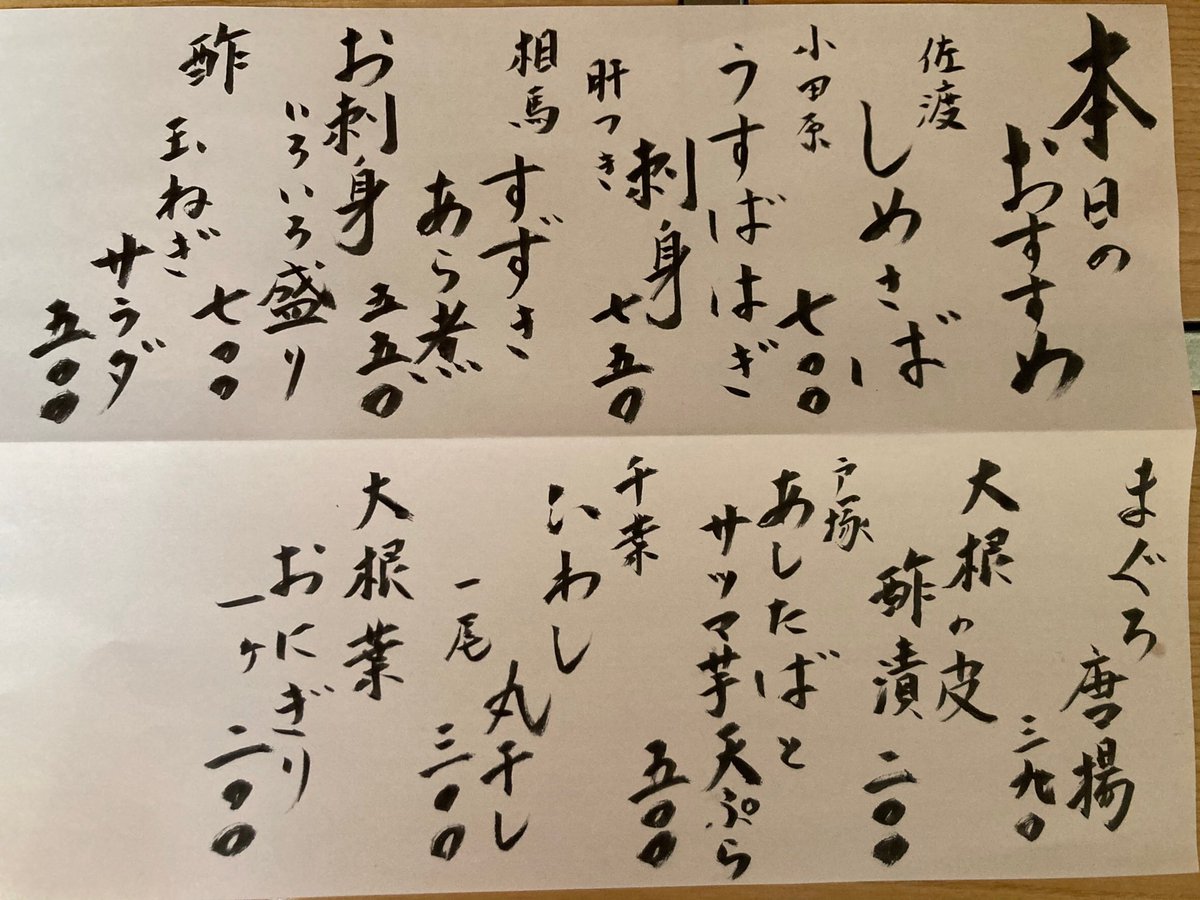 本日の
おすすめ
佐渡
しめさば
七〇〇
小田原
うすばはぎ
刺身
肝つき
七五〇
相馬
すずき
あら煮
五五〇
お刺身
いろいろ盛り
七〇〇
酢
玉ねぎ
サラダ
五〇〇
まぐろ
唐揚
三九〇
大根の皮
酢漬
二〇〇
戸塚
あしたばと
サツマ芋天ぷら
五〇〇
千葉
いわし
丸干し
一尾
三〇〇
大根葉
おにぎり
一ヶ
二〇〇